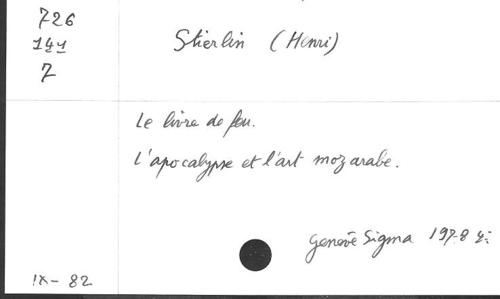 726
141
7
Stierlin (Henri)
Le livre de feu.
L'apocalypse et l'art mozarabe.
Genève Sigma 1978
IX - 82